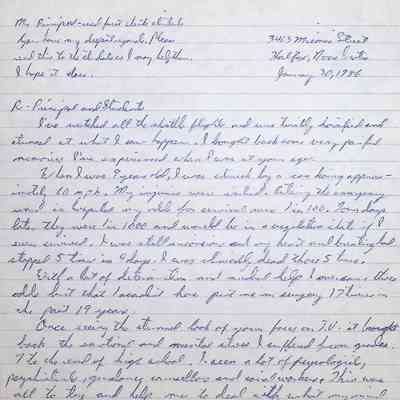 My Principal and first
hope have my deepest regards. Please
read this to the students I may help them.
I hope it does.
3413 Street
Halifax, Nova Scotia
January 30, 1986
Principal and Students
I've watched all the shuttle flights and was horrified and
stunned at what I saw happen. It bought back some very painful
memories I've experienced when I was at your age.
When I was 9 years old, I was struck by a car going approx-
imately 60 m.p.h. My injuries were
ward in hospital my odds for survival were 1 in 100. Four days
later they were 1 in 1000 and would be in a vegetative state if I
even survived. I was still unconscious and my heart and breathing had
stopped 5 times in 4 days. I was clinically dead those 5 times.
With a lot of determination and medical help I overcame those
odds but that have put me in surgery 17 times in
the past 19 years.
Once seeing the stunned look of your faces on T.V. it brought
back the emotional and mental stress I suffered from grades
7 to the end of high school. I seen a lot of psycologists,
psychiatrists, guidance counsellors and social workers. This was
all to try and help me to deal with what my mind